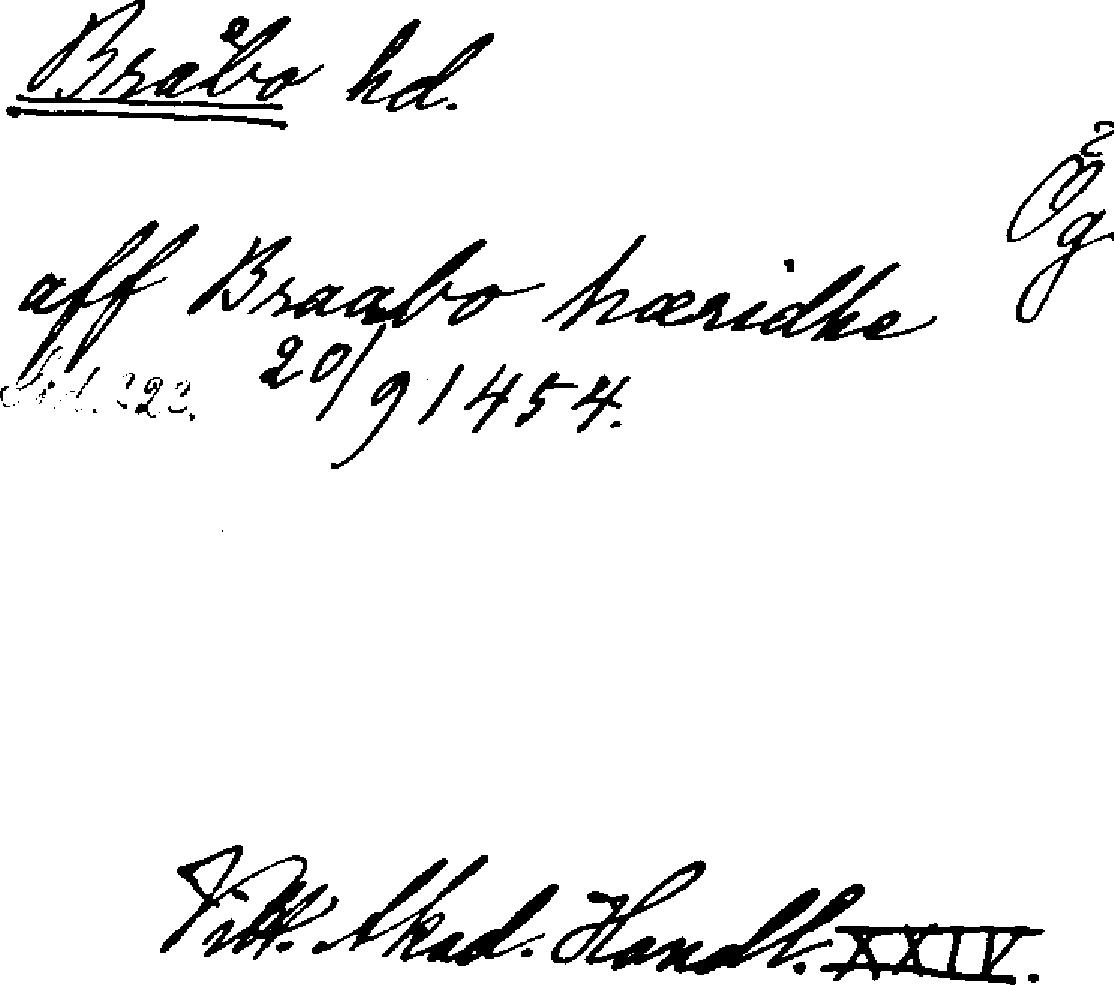 Bråbo hd.
Ög.
aff Braabo hæridhe
Sid. 323. 20/9 1454.
Vitt. Akad. Handl. XXIV.